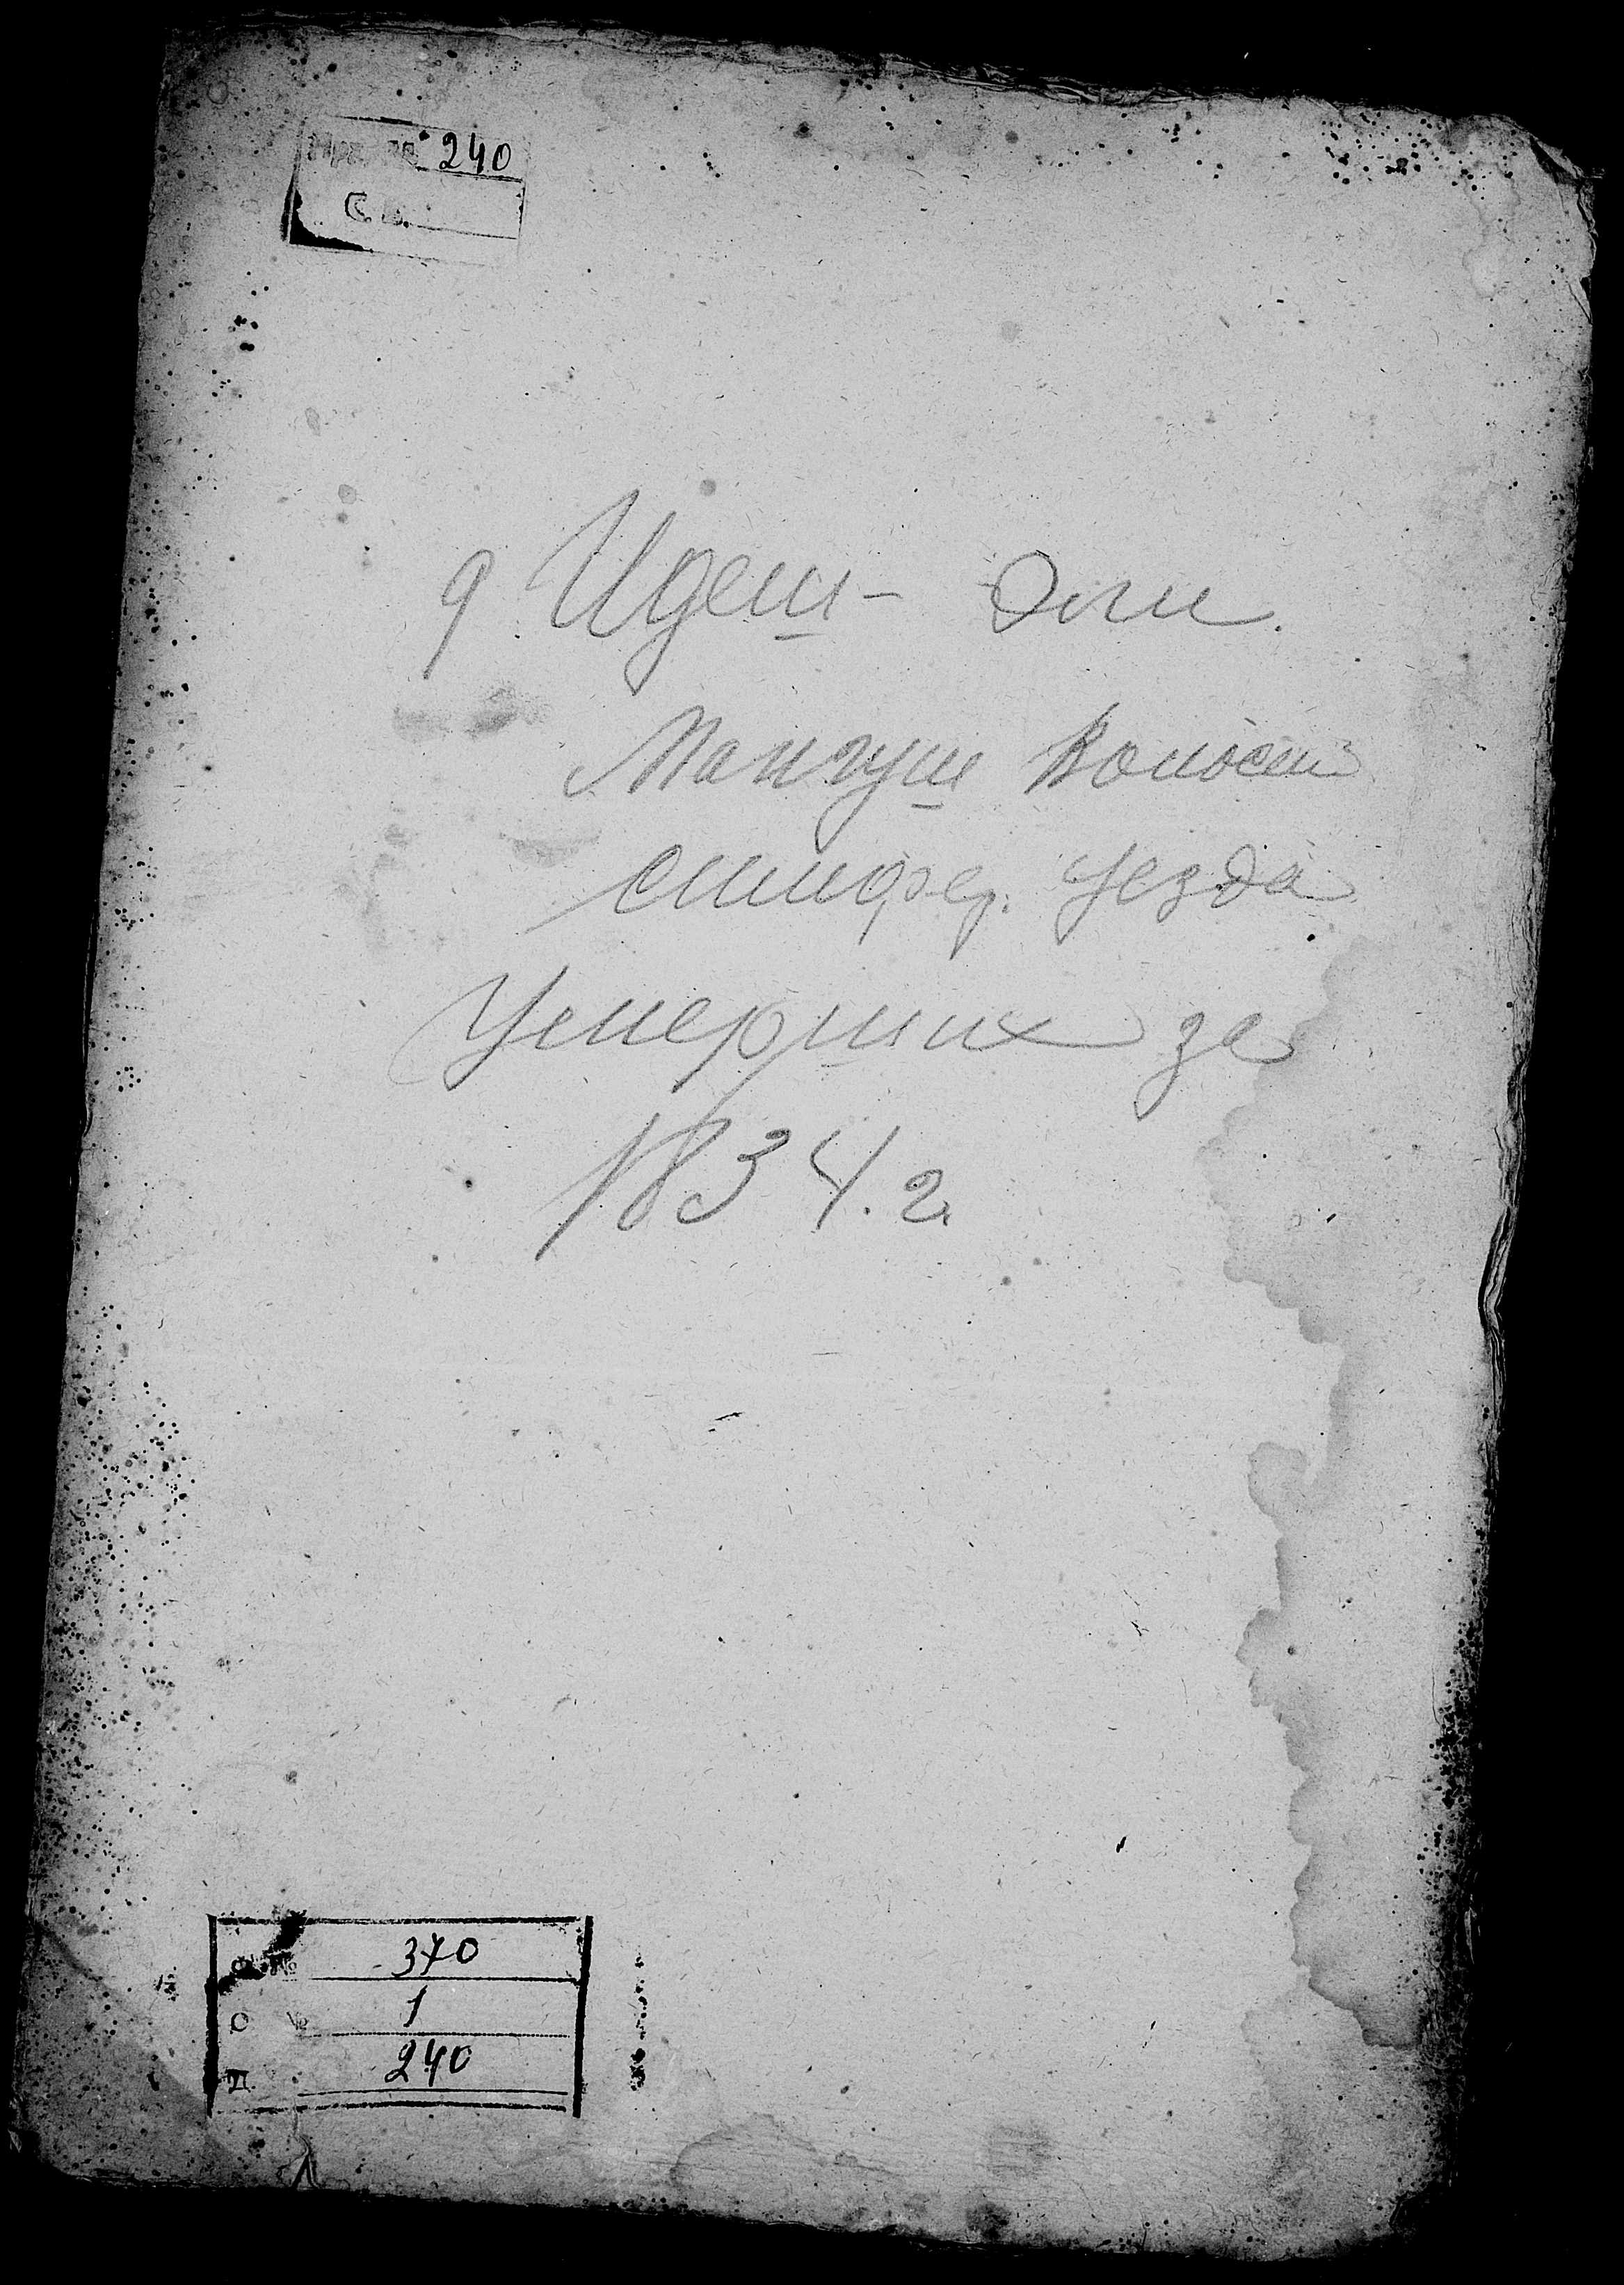 240
д. Идеш- Эли.
Мангуш Волости
симфер. Уезда
Умерших за
1834. г.
Ф. № 370
О № 1
Д. 240